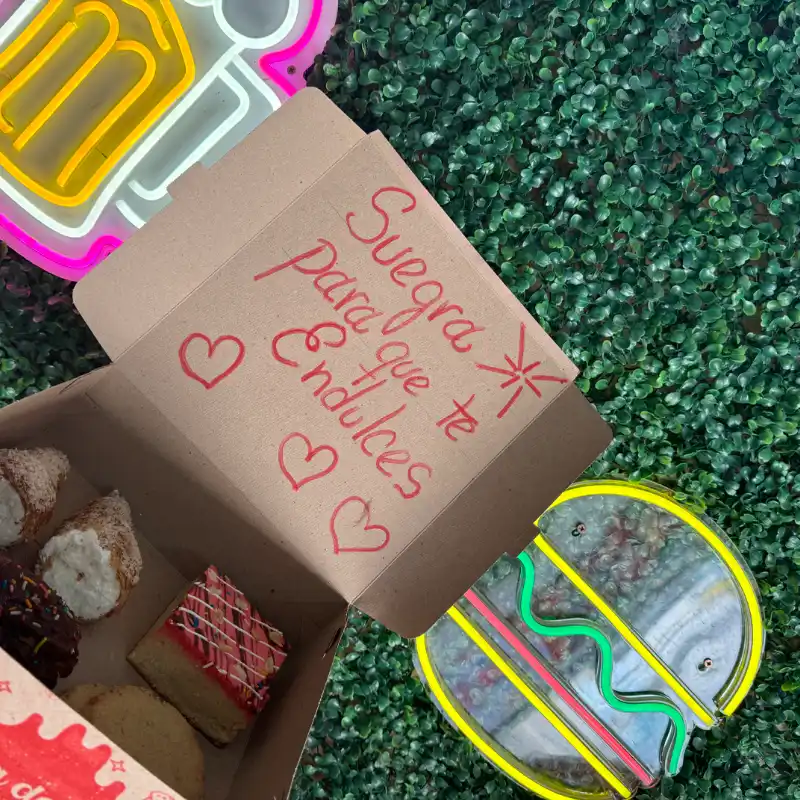 Suegra
para que te
Endulces